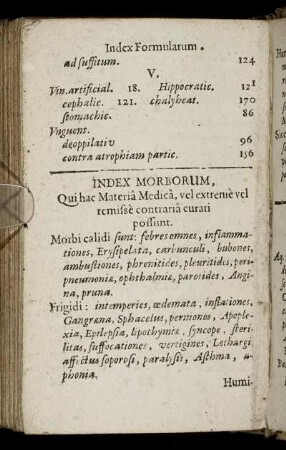 Index Formularum.
ad suffitum. 124
V.
Vin. artificial. 18. Hippocratic. 121
cephalic. 121. chalybeat. 170
stomachic. 86
Vnguent.
deoppilativ 96
contra atrophiam partic. 156
INDEX MORBORUM,
Qui hac Materiâ Medicâ, vel extremè vel
remissè contrariâ curati
possunt.
Morbi calidi sunt: febres omnes, inflamma-
tiones, Erysipelata, carbunculi, bubones,
ambustiones, phrenitides, pleuritides, peri-
pneumoniæ, ophthalmiæ, parotides, Angi-
na, pruna.
Frigidi: intemperies, œdemata, inflationes,
Gangræna, Sphacelus, perniones, Apople-
xia, Epilepsia, lipothymiæ, syncope, steri-
litas, suffocationes, vertigines, Lethargi,
affectus soporosi, paralysis, Asthma, a-
phonia.
Humi-